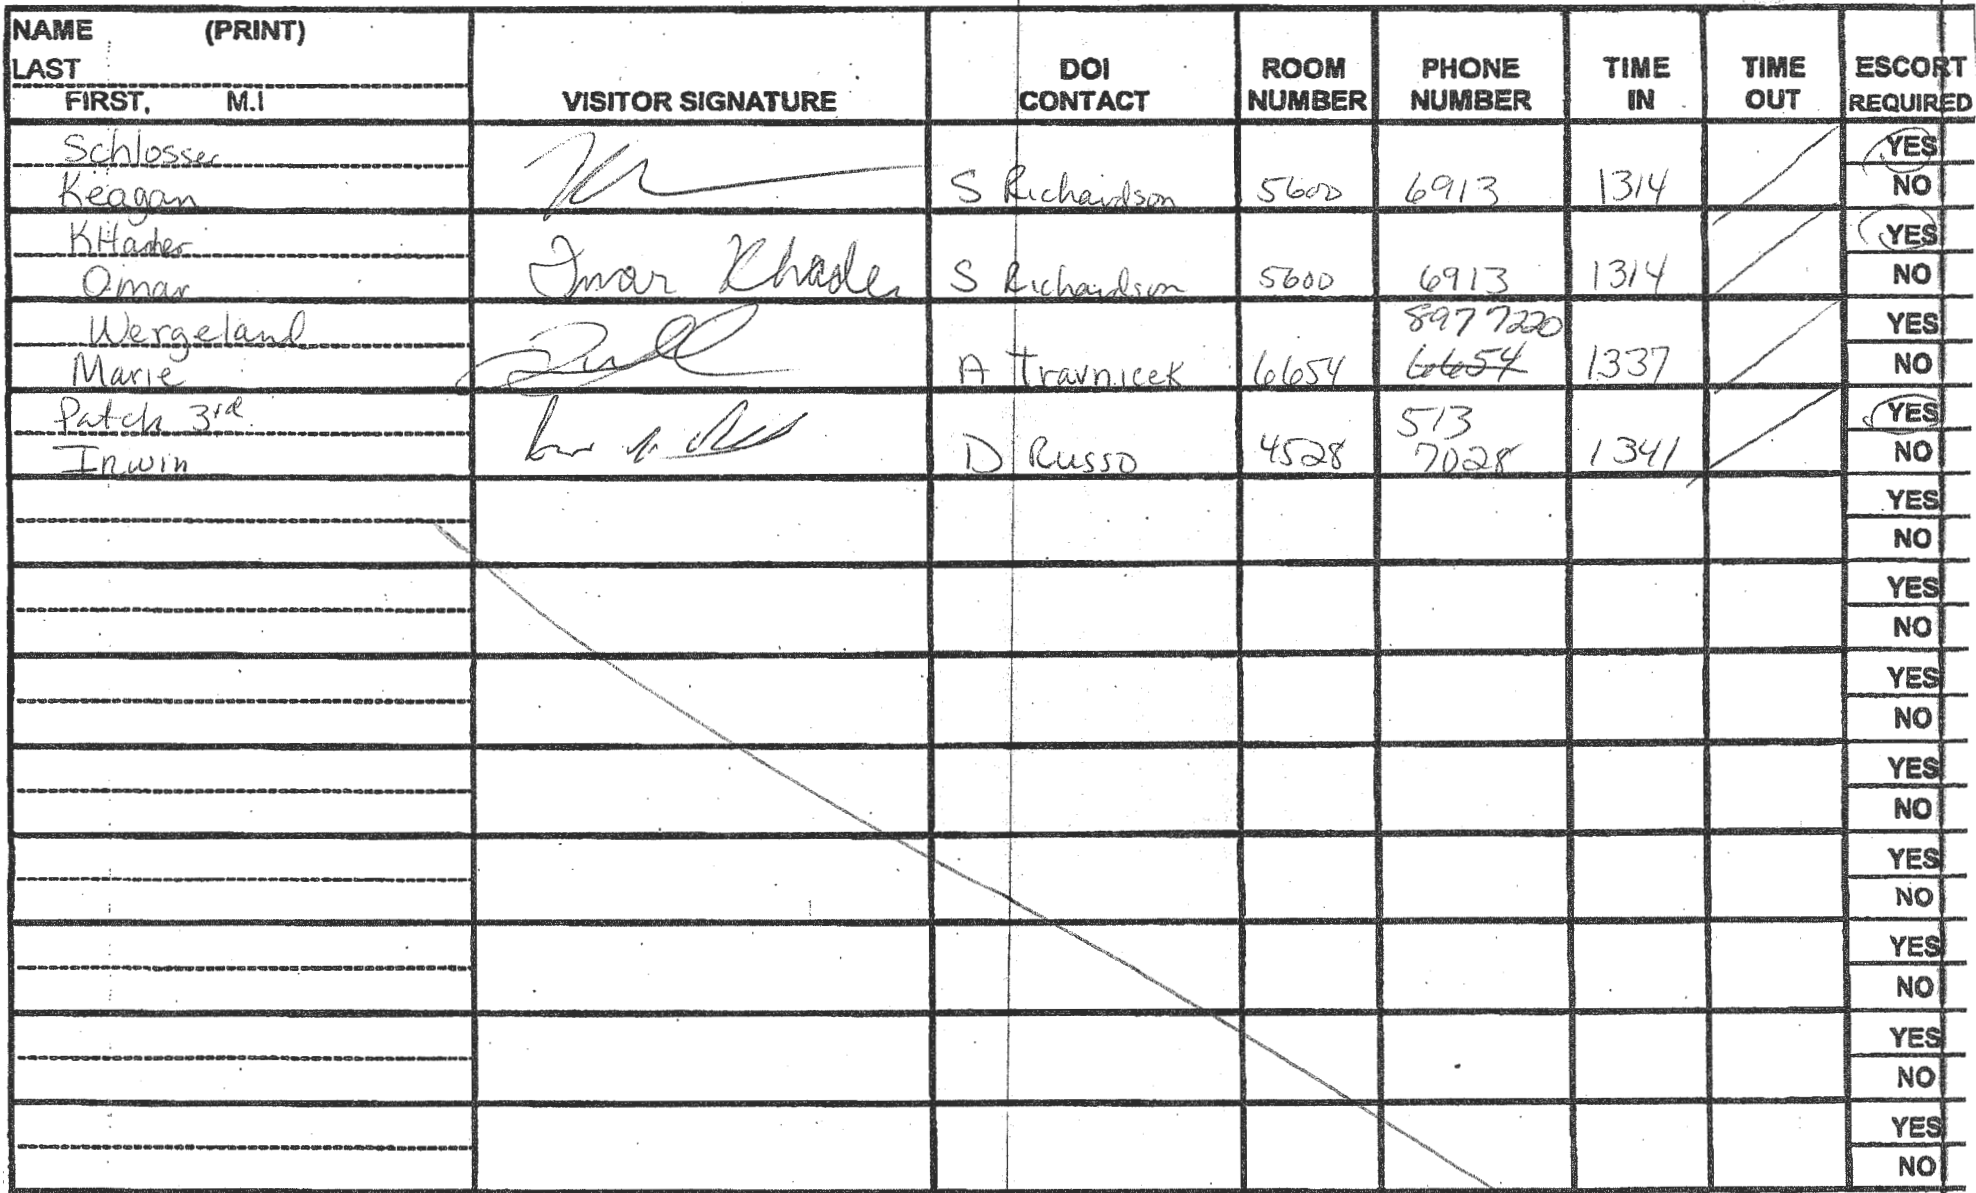 NAME (PRINT)
LAST
FIRST, M.I
VISITOR SIGNATURE
DOI
CONTACT
ROOM
NUMBER
PHONE
NUMBER
TIME
IN
TIME
OUT
ESCORT
REQUIRED
Schlosser
Keagan
S Richardson 5600 6913 1314
YES
NO
KHader
Omar
Omar Khader
S Richardson 5600 6913 1314
YES
NO
Wergeland
Marie
A Travnicek 6654
8977220
6654
1337
YES
NO
Patch 3rd
Irwin
D Russo 4528
513
7028
1341
YES
NO
YES
NO
YES
NO
YES
NO
YES
NO
YES
NO
YES
NO
YES
NO
YES
NO